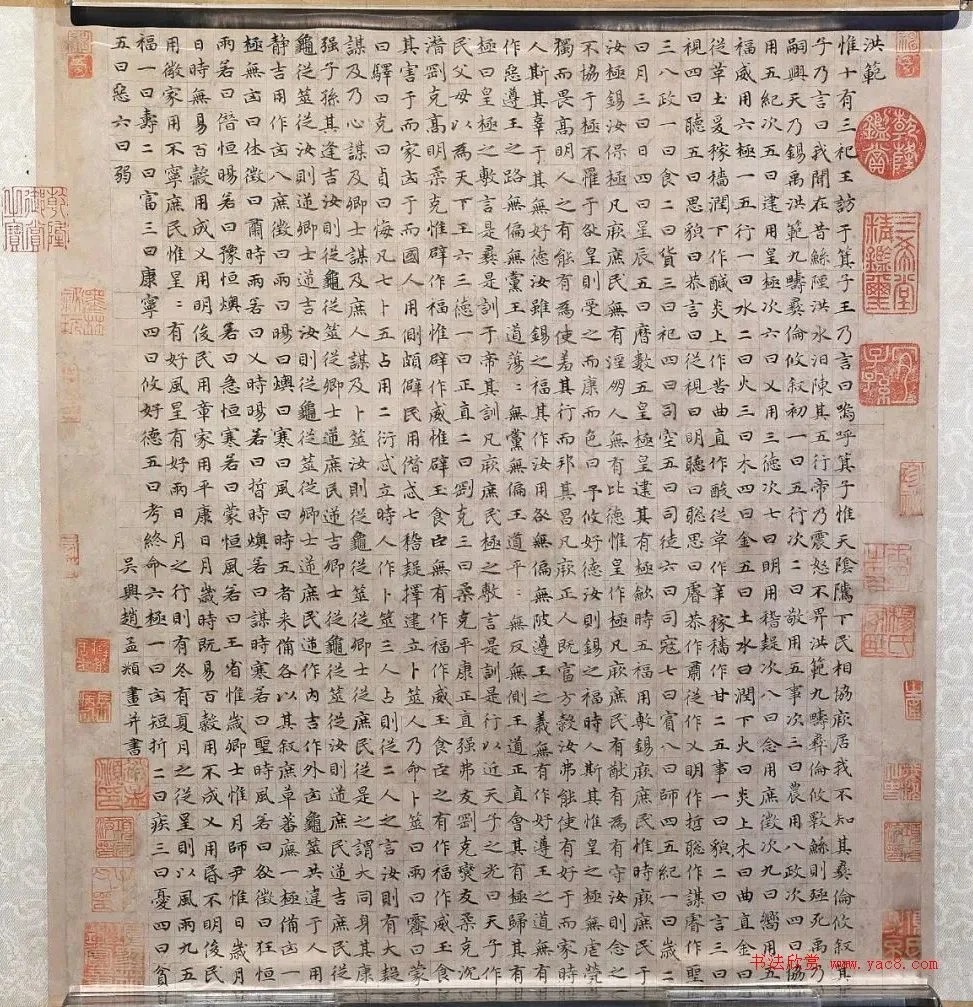 洪範
惟十有三祀王訪于箕子王乃言曰嗚呼箕子惟天陰騭下民相協厥居我不知其彝倫攸叙箕
子乃言曰我聞在昔鯀陻洪水汨陳其五行帝乃震怒不畀洪範九疇彝倫攸斁鯀則殛死禹乃
嗣興天乃錫禹洪範九疇彝倫攸叙初一曰五行次二曰敬用五事次三曰農用八政次四曰協
用五紀次五曰建用皇極次六曰乂用三德次七曰明用稽疑次八曰念用庶徵次九曰嚮用五
福威用六極一五行一曰水二曰火三曰木四曰金五曰土水曰潤下火曰炎上木曰曲直金曰
從革土爰稼穡潤下作鹹炎上作苦曲直作酸從革作辛稼穡作甘二五事一曰貌二曰言三曰
視四曰聽五曰思貌曰恭言曰從視曰明聽曰聰思曰睿恭作肅從作乂明作哲聰作謀睿作聖
三八政一曰食二曰貨三曰祀四曰司空五曰司徒六曰司寇七曰賓八曰師四五紀一曰歲二
曰月三曰日四曰星辰五曰曆數五皇極皇建其有極歛時五福用敷錫厥庶民惟時厥庶民于
汝極錫汝保極凡厥庶民無有淫朋人無有比德惟皇作極凡厥庶民有猷有為有守汝則念之
不協于極不罹于咎皇則受之而康而色曰予攸好德汝則錫之福時人斯其惟皇之極無虐煢
獨而畏高明人之有能有為使羞其行而邦其昌凡厥正人既富方穀汝弗能使有好于而家時
人斯其辜于其無好德汝雖錫之福其作汝用咎無偏無陂遵王之義無有作好遵王之道無有
作惡遵王之路無偏無黨王道蕩：無黨無偏王道平：無反無側王道正直會其有極歸其有
極曰皇極之敷言是彝是訓于帝其訓凡厥庶民極之敷言是訓是行以近天子之光曰天子作
民父母以為天下王六三德一曰正直二曰剛克三曰柔克平康正直强弗友剛克爕友柔克沉
潛剛克高明柔克惟辟作福惟辟作威惟辟玉食臣無有作福作威玉食臣之有作福作威玉食
其害于而家凶于而國人用側頗僻民用僭忒七稽疑擇建立卜筮人乃命卜筮曰雨曰霽曰蒙
曰驛曰克曰貞曰悔凡七卜五占用二衍忒立時人作卜筮三人占則從二人之言汝則有大疑
謀及乃心謀及卿士謀及庶人謀及卜筮汝則從龜從筮從卿士從庶民從是之謂大同身其康
强子孫其逢吉汝則從龜從筮從卿士逆庶民逆吉卿士從龜從筮從汝則逆庶民逆吉庶民從
龜從筮從汝則逆卿士逆吉汝則從龜從筮逆卿士逆庶民逆作內吉作外凶龜筮共違于人用
靜吉用作凶八庶徵曰雨曰暘曰燠曰寒曰風曰時五者來備各以其叙庶草蕃廡一極備凶一
極無凶曰休徵曰肅時雨若曰乂時暘若曰哲時燠若曰謀時寒若曰聖時風若曰咎徵曰狂恒
雨若曰僭恒暘若曰豫恒燠若曰急恒寒若曰蒙恒風若曰王省惟歲卿士惟月師尹惟日歲月
日時無易百穀用成乂用明俊民用章家用平康日月歲時既易百穀用不成乂用昏不明俊民
用微家用不寧庶民惟星：有好風星有好雨日月之行則有冬有夏月之從星則以風雨九五
福一曰壽二曰富三曰康寧四曰攸好德五曰考終命六極一曰凶短折二曰疾三曰憂四曰貧
五曰惡六曰弱
吳興趙孟頫畫并書
乾隆鑑賞
三希堂精鑑璽
宜子孫
乾隆御覽之寶
书法欣赏 www.yac8.com